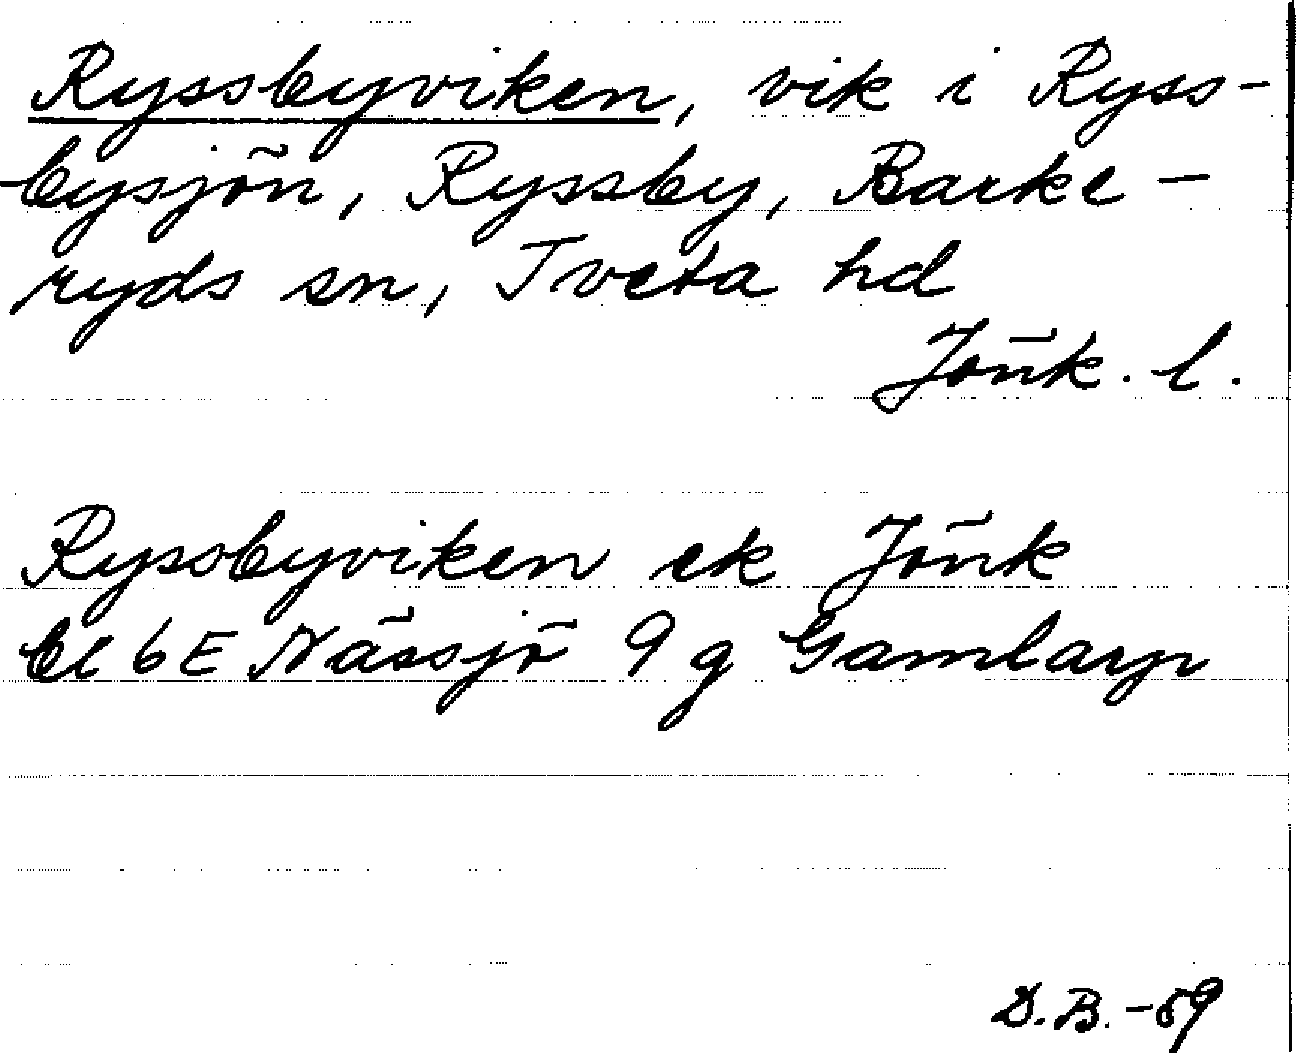 Ryssbyviken, vik i Ryss-
bysjön, Ryssby, Barke-
ryds sn, Tveta hd
Jönk. l.
Ryssbyviken ek Jönk
bl 6E Nässjö 9 g Gamlarp
D.B. -69